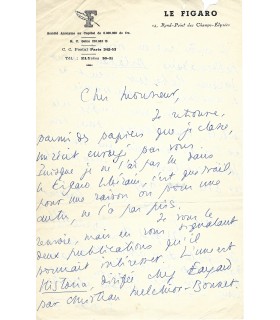 LE FIGARO
14, Rond-Point des Champs-Élysées
Société Anonyme au Capital de
R. C. Seine
C. C. Postal Paris
Tél. : ÉLYsées
Cher Monsieur,
Je retrouve,
parmi des papiers que je classe,
un récit envoyé par vous.
Puisque je ne l'ai pas lu dans
le Figaro littéraire, c'est que
pour une raison ou pour une
autre, ne l'a pas pris.
Je vous le
renvoie, mais en vous signalant
deux publications qu'il
pourrait intéresser. L'une est
Historia, dirigée chez Fayard
par Christian Melchior-Bonnet.